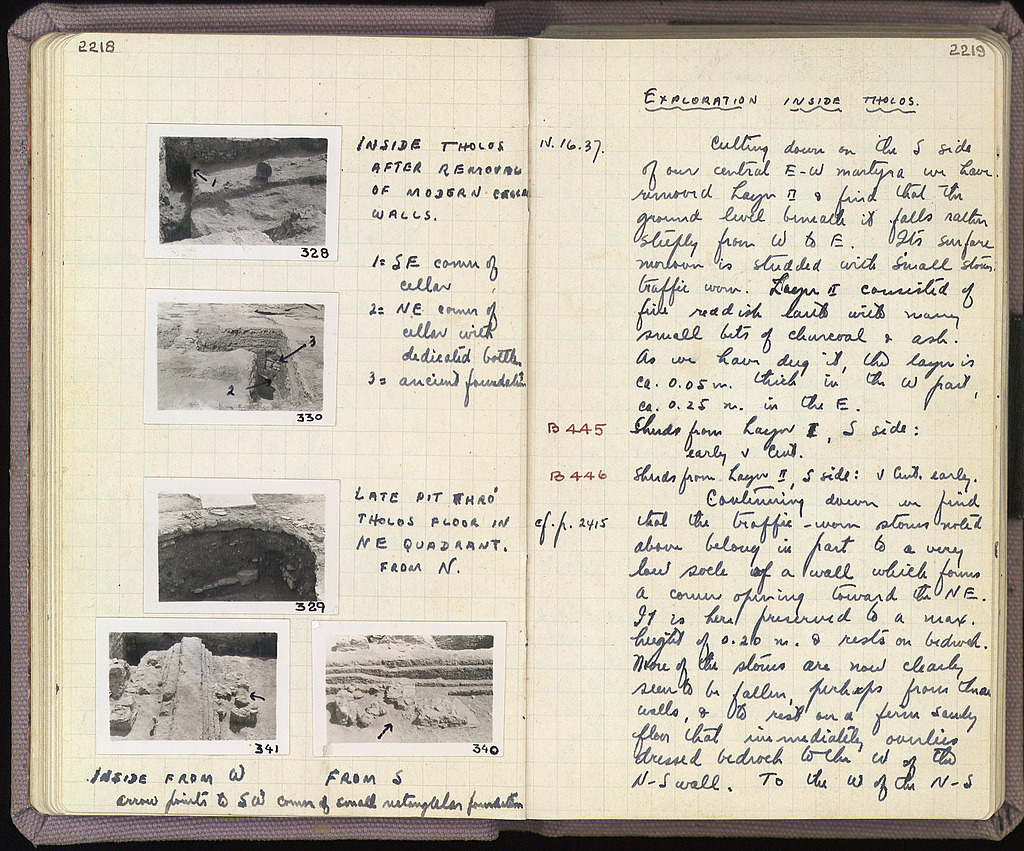 2218
328
INSIDE THOLOS
AFTER REMOVAL
OF MODERN CELLAR
WALLS.
1
1 = SE corner of
cellar
2 = NE corner of
cellar with
dedicated bottle
3 = ancient foundation
3
2
330
LATE PIT THRO'
THOLOS FLOOR IN
NE QUADRANT.
FROM N.
329
341
340
INSIDE FROM W
FROM S
arrow points to SW corner of small rectangular foundation
2219
EXPLORATION INSIDE THOLOS.
IV.16.37. Cutting down on the S side
of our central E-W martyra we have
removed Layer II & find that the
ground level beneath it falls rather
steeply from W to E. Its surface
moreover is studded with small stones
traffic worn. Layer II consisted of
fine reddish earth with many
small bits of charcoal & ash.
As we have dug it, the layer is
ca. 0.05 m. thick in the W part,
ca. 0.25 m. in the E.
B 445 Sherds from Layer I, S side:
early V Cent.
B 446 Sherds from Layer II, S side: V Cent. early.
Continuing down we find
cf. p. 2415 that the traffic-worn stones noted
above belong in part to a very
low socle of a wall which forms
a corner opening toward the NE.
It is here preserved to a max.
height of 0.20 m. & rests on bedrock.
More of the stones are now clearly
seen to be fallen, perhaps from these
walls, & to rest on a firm sandy
floor that immediately overlies
dressed bedrock to the W of the
N-S wall. To the W of the N-S